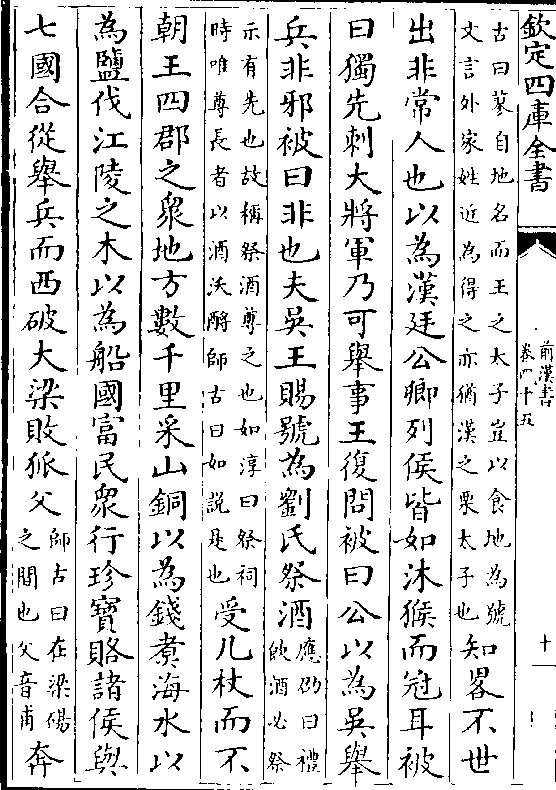 欽定四庫全書
前漢書
卷四十五
十一
古曰蓼自地名而王之太子豈以食地為號
文言外家姓近為得之亦猶漢之栗太子也
知畧不世
出非常人也以為漢廷公卿列侯皆如沐猴而冠耳被
曰獨先刺大將軍乃可舉事王復問被曰公以為吳舉
兵非邪被曰非也夫吳王賜號為劉氏祭酒
應劭曰禮
飲酒必祭
示有先也故稱祭酒尊之也如淳曰祭祠
時唯尊長者以酒沃酹師古曰如說是也
受几杖而不
朝王四郡之衆地方數千里采山銅以為錢煑海水以
為鹽伐江陵之木以為船國富民衆行珍寶賂諸侯與
七國合從舉兵而西破大梁敗狐父
師古曰在梁碭
之間也父音甫
奔